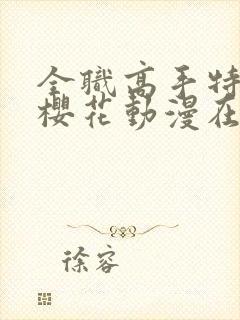 全職高手特
櫻花動漫在
徐容